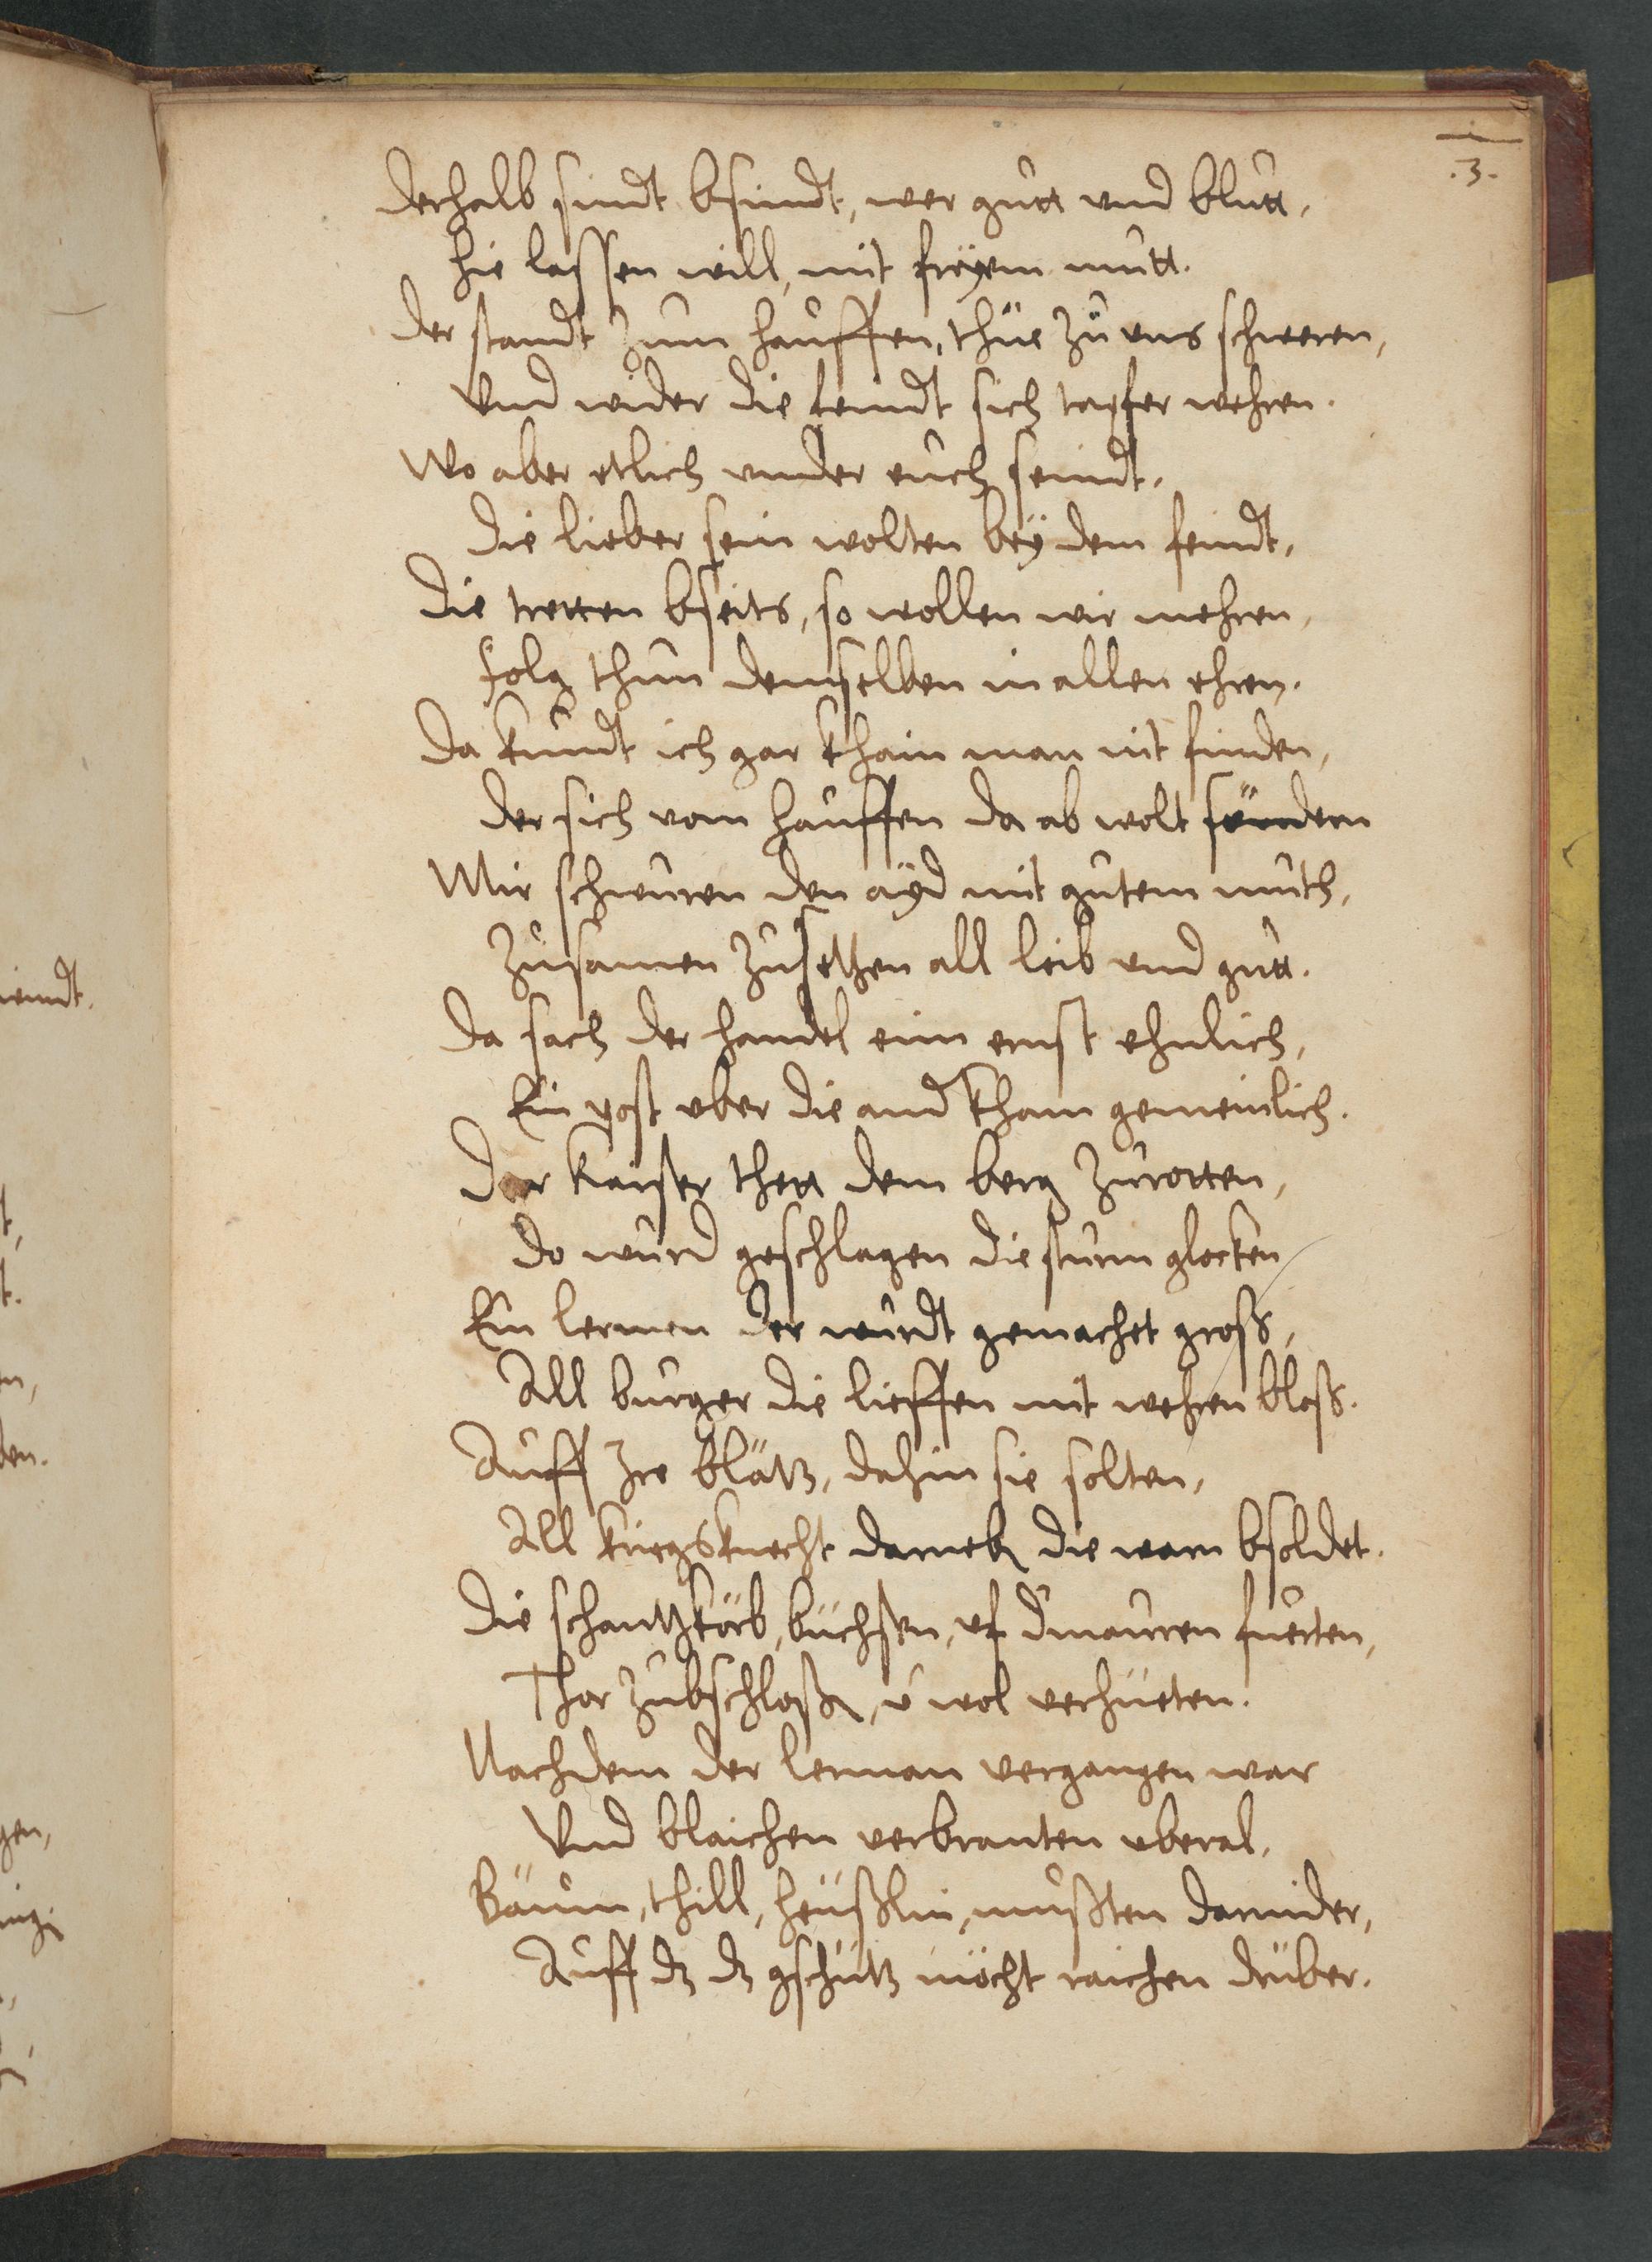 .3.
Derhalb sindt bsindt, wer gutt und blutt,
hie lassen will, mit freyem mutt.
Der standt zum hauffen, thüe zu uns schweren,
Und wider die feindt sich tapfer wehren.
Wo aber etlich under euch seindt,
Die lieber sein wolten bey dem feindt,
Die tretten bseits, so wollen wir mehren,
folg thun demselben in allen ehren.
Da kundt ich gar khain man nit finden,
Der sich vom hauffen da ab wolt sündern
Mir schwuren den ayd mit gutem muth,
Zusamen zusetzen all leib und gutt.
Da sach der handel eim ernst ehnlich,
Ein post uber die and kham gemeinlich.
Der Kaißer thett dem berg zurotten,
Do wurd geschlagen die sturm glocken
Ein lermen der wurdt gemachet gross,
All burger die lieffen mit wehren bloss.
Auff Ire blätz, dahin sie solten,
All kriegsknecht darneb die warn bsoldet.
Die schantzkörb, büchßen, uf d'mauren fuerten,
Thor zubschloßen, u wol verhüeten.
Nachdem der lerman vergangen war
Und blaichen verbranten uberal,
Bäum, thill, heüßlin, mußten darnider,
Auff dz dz gschütz möcht raichen drüber.